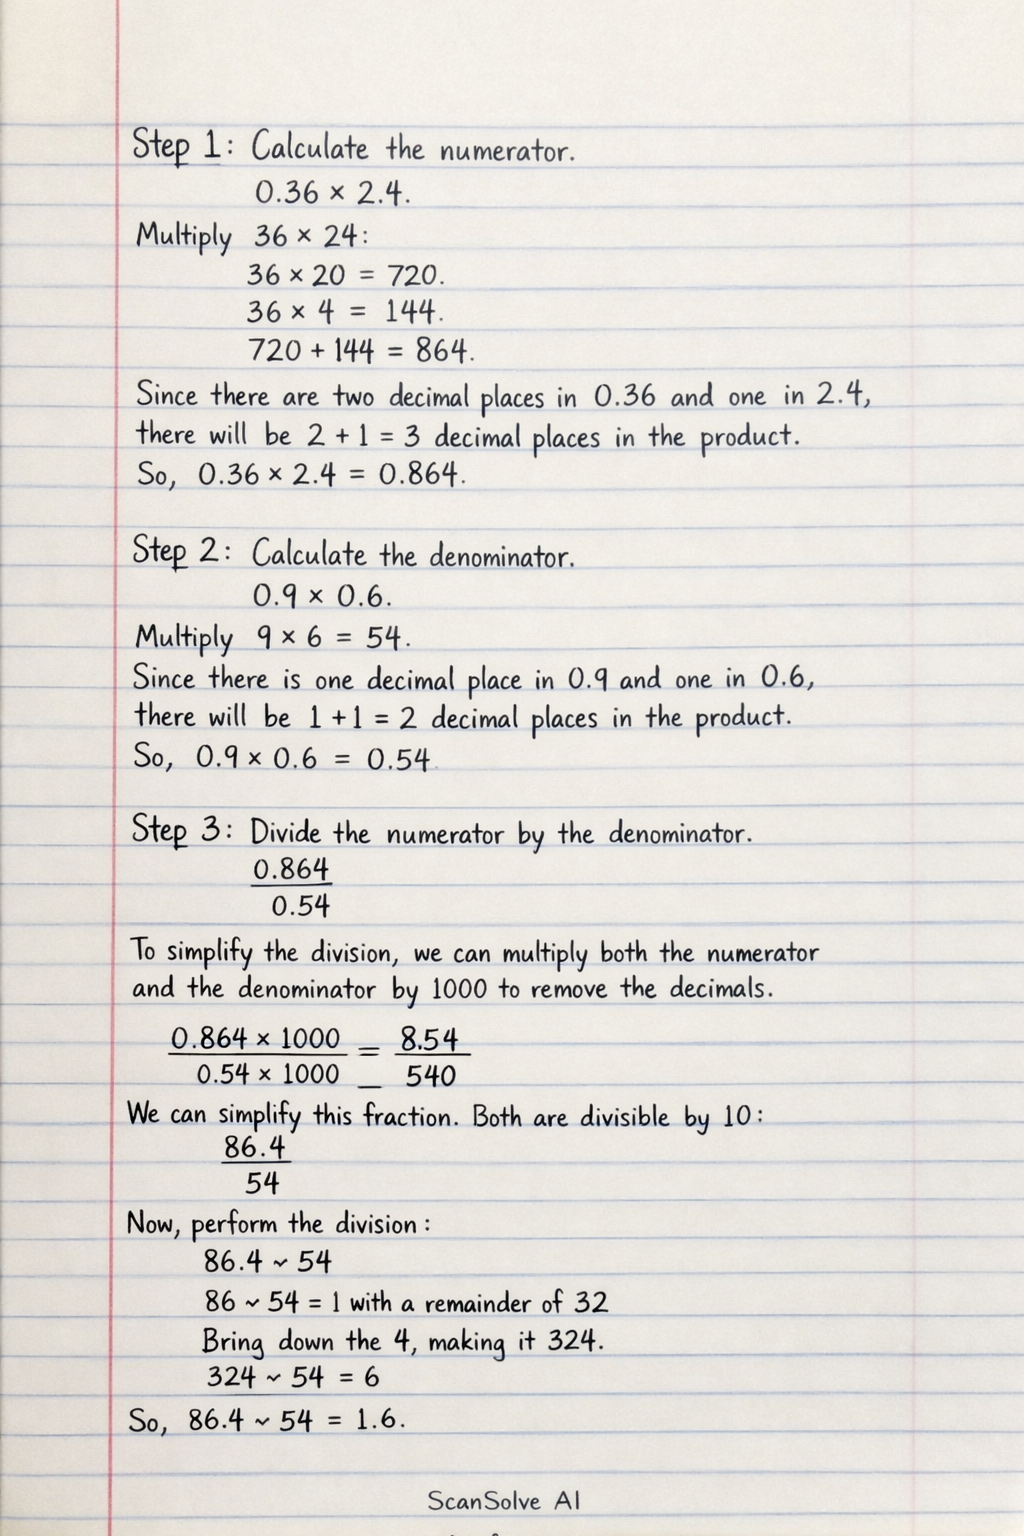 Step 1: Calculate the numerator.
0.36 × 2.4.
Multiply 36 × 24:
36 × 20 = 720.
36 × 4 = 144.
720 + 144 = 864.
Since there are two decimal places in 0.36 and one in 2.4,
there will be 2 + 1 = 3 decimal places in the product.
So, 0.36 × 2.4 = 0.864.
Step 2: Calculate the denominator.
0.9 × 0.6.
Multiply 9 × 6 = 54.
Since there is one decimal place in 0.9 and one in 0.6,
there will be 1 + 1 = 2 decimal places in the product.
So, 0.9 × 0.6 = 0.54
Step 3: Divide the numerator by the denominator.
0.864
0.54
To simplify the division, we can multiply both the numerator
and the denominator by 1000 to remove the decimals.
0.864 × 1000 = 8.54
0.54 × 1000 540
We can simplify this fraction. Both are divisible by 10:
86.4
54
Now, perform the division:
86.4 ~ 54
86 ~ 54 = 1 with a remainder of 32
Bring down the 4, making it 324.
324 ~ 54 = 6
So, 86.4 ~ 54 = 1.6.
ScanSolve AI